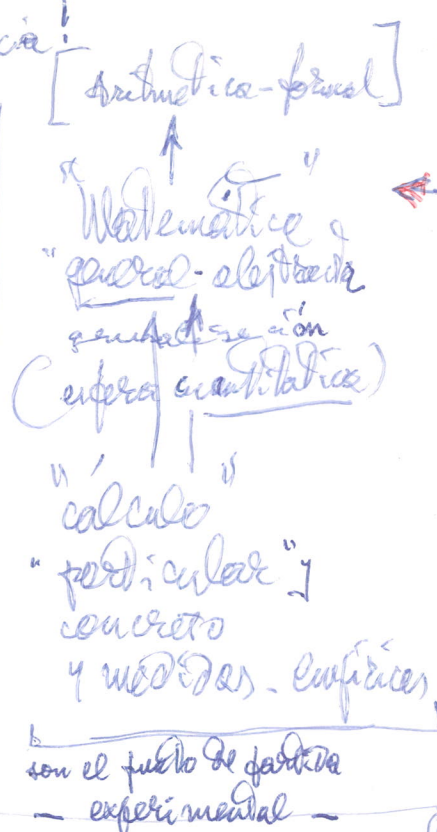 cia!
[aritmética-formal]
"Matemática"
"general-abstracta
generalización
(esfera cuantitativa)
"cálculo"
"particular" y
concreto
y medidas - empíricas,
son el punto de partida
- experimental -